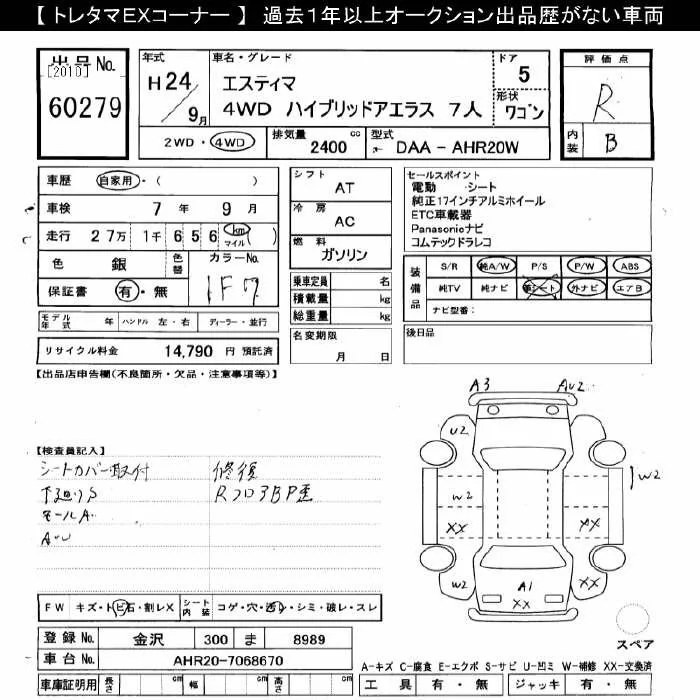 【 トレタマEXコーナー 】 過去1年以上オークション出品歴がない車両
出品No.
[2010]
60279
年式
H24/9月
車名・グレード
エスティマ
4WD ハイブリッドアエラス 7人
ドア
5
形状
ワゴン
2WD・4WD
排気量
2400 cc
型式
DAA - AHR20W
評価点
R
内装
B
車歴 自家用・( )
車検 7 年 9 月
走行 27万 1千 6 5 6 km マイル ( )
色 銀 色替 カラーNo. 1F7
保証書 有・無
モデル年式 年 ハンドル 左・右 ディーラー・並行
リサイクル料金 14,790 円 預託済
シフト AT
冷房 AC
燃料 ガソリン
乗車定員 名
積載量 kg
総重量 kg
名変期限
月 日
セールスポイント
電動 シート
純正17インチアルミホイール
ETC車載器
Panasonicナビ
コムテックドラレコ
装備品
S/R 純A/W P/S P/W ABS
純TV 純ナビ 革シート 外ナビ エアB
ナビ型番:
後日品
【出品店申告欄(不良箇所・欠品・注意事項等)】
【検査員記入】
シートカバー取付
下廻りS
モールA
AU
修復
Rフロア BP歪
A3
AU2
U2
W2
W2
XX
XX
W2
A1
XX
XX
スペア
FW キズ・トビ石・割レX シート内装 コゲ・穴・汚レ・シミ・破レ・スレ
登録No. 金沢 300 ま 8989
車台No. AHR20-7068670
車庫証明用 長さ cm 幅 cm 高さ cm
A-キズ C-腐食 E-エクボ S-サビ U-凹ミ W-補修 XX-交換済
工具 有・無 ジャッキ 有・無